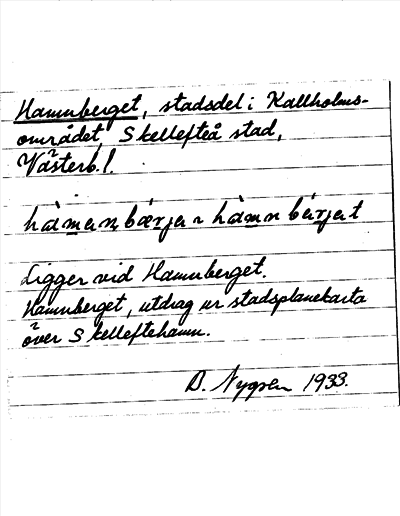 Hamnberget, stadsdel i Kallholms-
området, Skellefteå stad,
Västerb. l.
hàmen bærje ~ hàmn bérjet
Ligger vid Hamnberget.
Hamnberget, utdrag ur stadsplanekarta
över Skelleftehamn.
D. Nygren 1933.